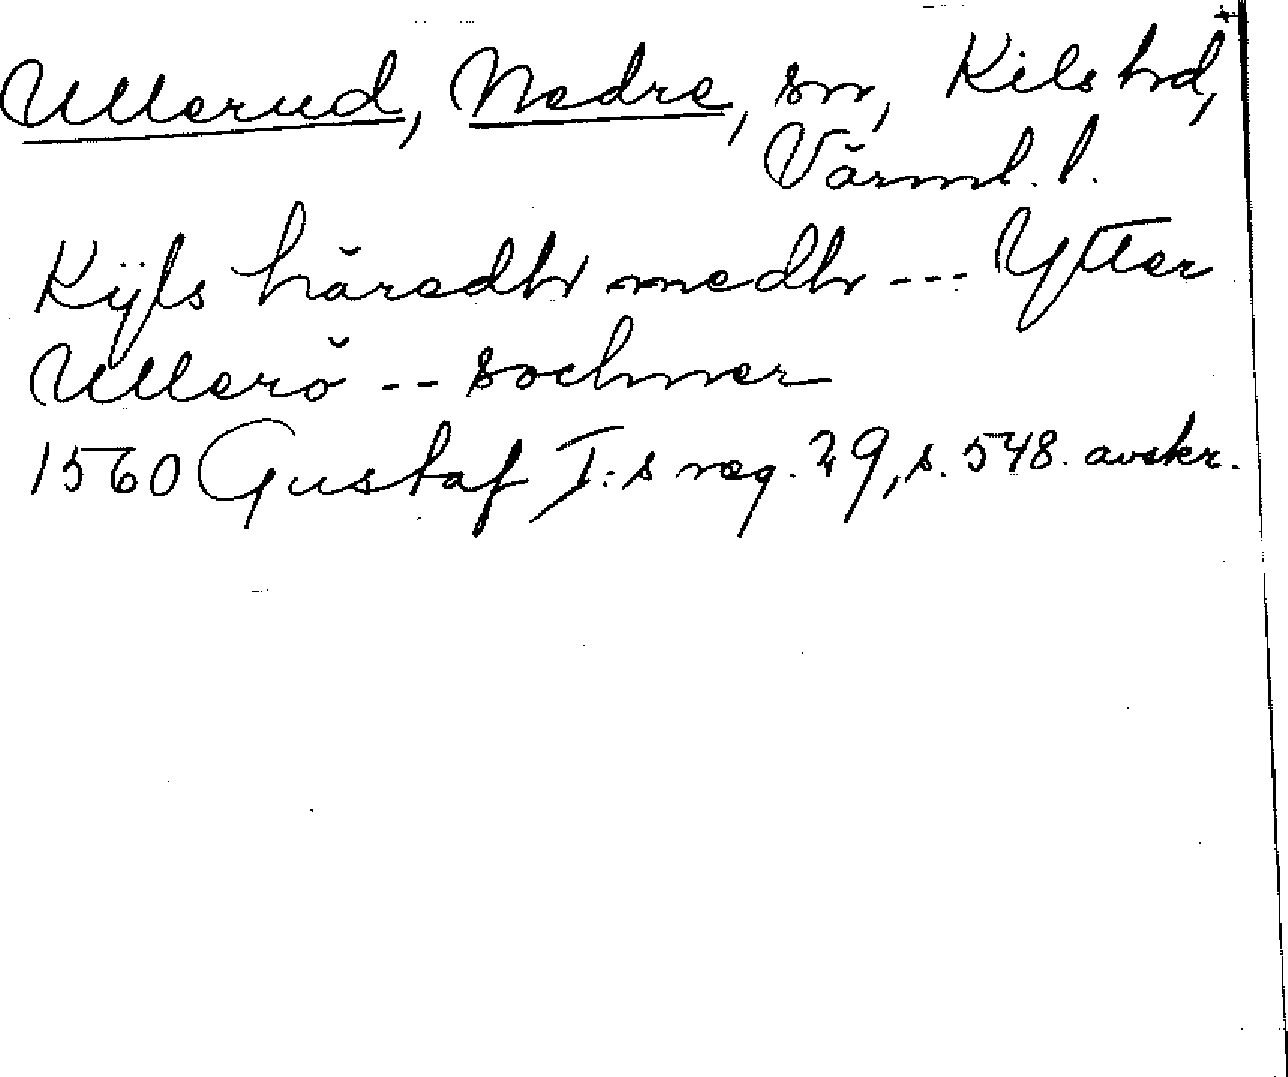 Ullerud, Nedre, sn, Kils hd,
Värml. l.
Kÿls häredh medh --- Ytter
Ullerö -- sochner
1560 Gustaf I:s reg. 29, s. 548. avskr.